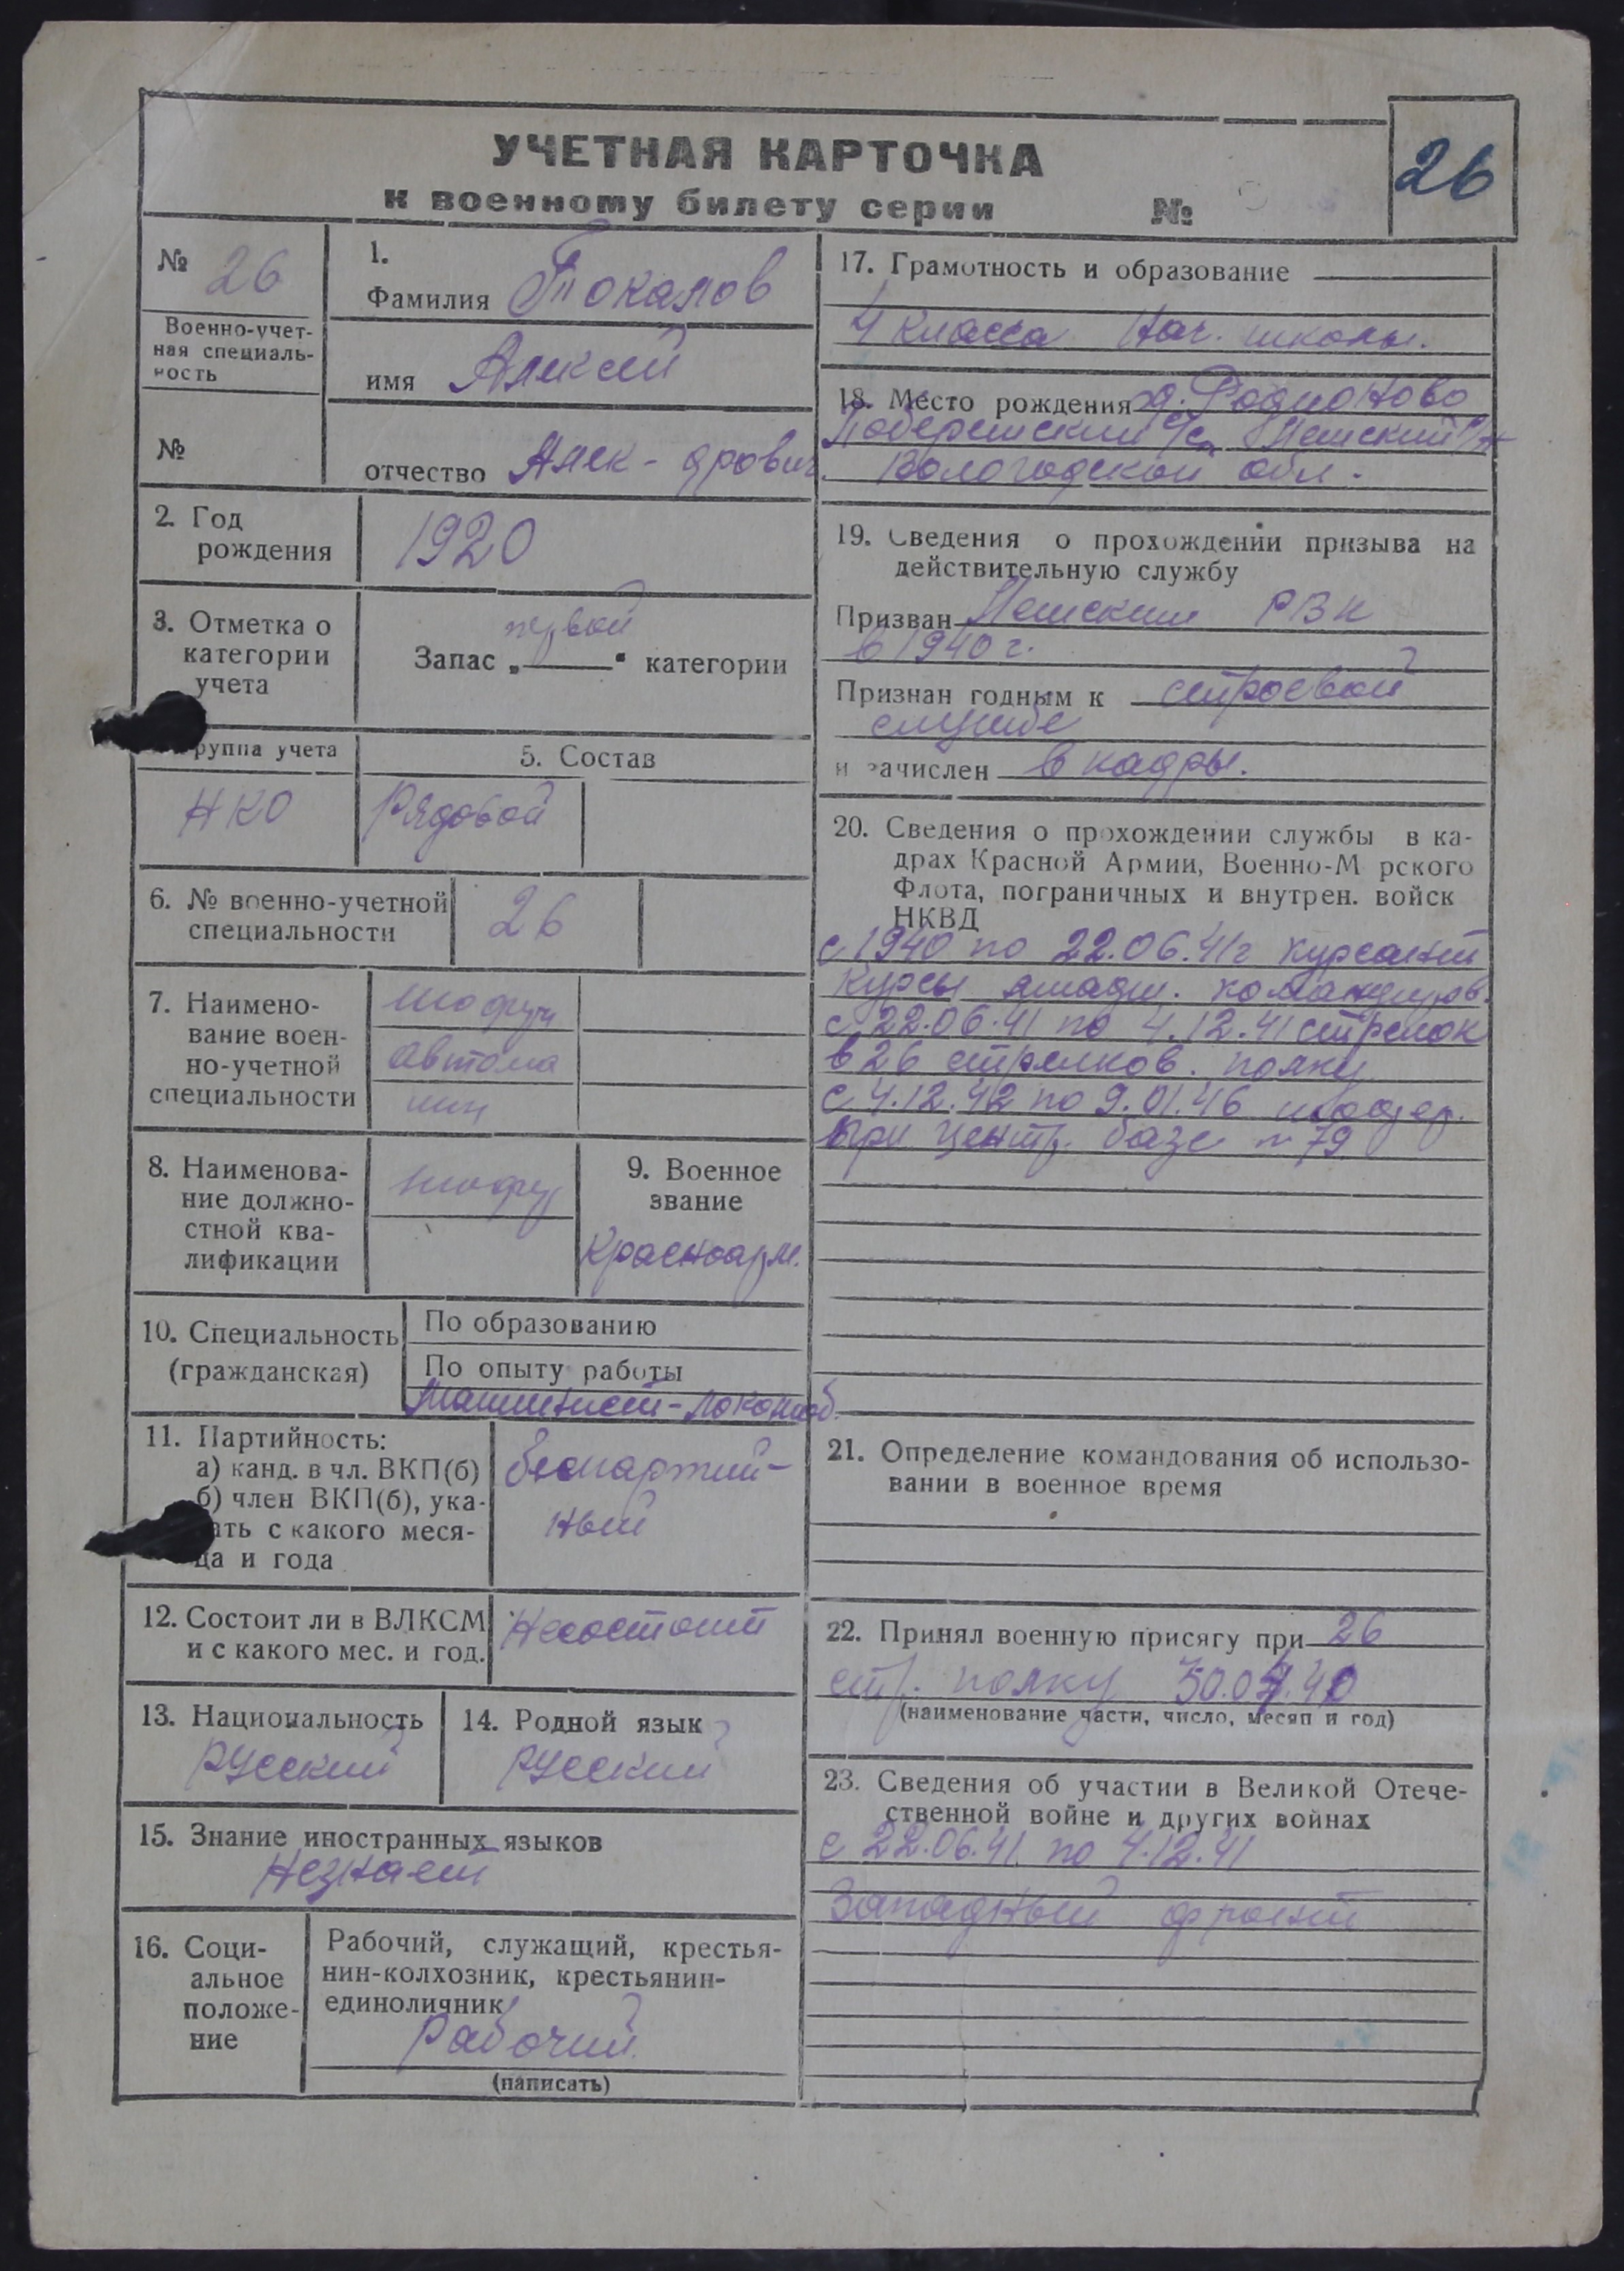 УЧЕТНАЯ КАРТОЧКА
к военному билету серии №
26
№ 26
Военно-учет-
ная специаль-
ность
№
1.
Фамилия Токалов
имя Алексей
отчество Алек-дрович.
2. Год
рождения
1920
3. Отметка о
категории
учета
Запас „первой“ категории
руппа учета
НКО
5. Состав
Рядовой
6. № военно-учетной
специальности
26
7. Наимено-
вание воен-
но-учетной
специальности
Шофер
автома
шин
8. Наименова-
ние должно-
стной ква-
лификации
шофер
9. Военное
звание
Красноарм.
10. Специальность
(гражданская)
По образованию
По опыту работы
Машинист-локомоб.
11. Партийность:
а) канд. в чл. ВКП(б)
б) член ВКП(б), ука-
ать с какого меся-
ца и года
беспартий-
ный
12. Состоит ли в ВЛКСМ
и с какого мес. и год.
Несостоит
13. Национальность
Русский
14. Родной язык
Русский
15. Знание иностранных языков
Незнает
16. Соци-
альное
положе-
ние
Рабочий, служащий, крестья-
нин-колхозник, крестьянин-
единоличник
Рабочий.
(написать)
17. Грамотность и образование
4 класса Нач. школы.
18. Место рождения д. Родионово
с/с р/н
Вологодской обл.
19. Сведения о прохождении призыва на
действительную службу
Призван РВК
в 1940 г.
Признан годным к строевой
службе
и зачислен в кадры.
20. Сведения о прохождении службы в ка-
драх Красной Армии, Военно-М рского
Флота, пограничных и внутрен. войск
НКВД
с 1940 по 22.06.41г курсант
курсы младш. командиров.
с 22.06.41 по 4.12.41 стрелок
в 26 стрелков. полку
с 4.12.42 по 9.01.46
при центр. базе № 79
21. Определение командования об использо-
вании в военное время
22. Принял военную присягу при 26
стр. полку
(наименование части, число, месяц и год)
23. Сведения об участии в Великой Отече-
ственной войне и других войнах
с 22.06.41 по 4.12.41
Западный фронт